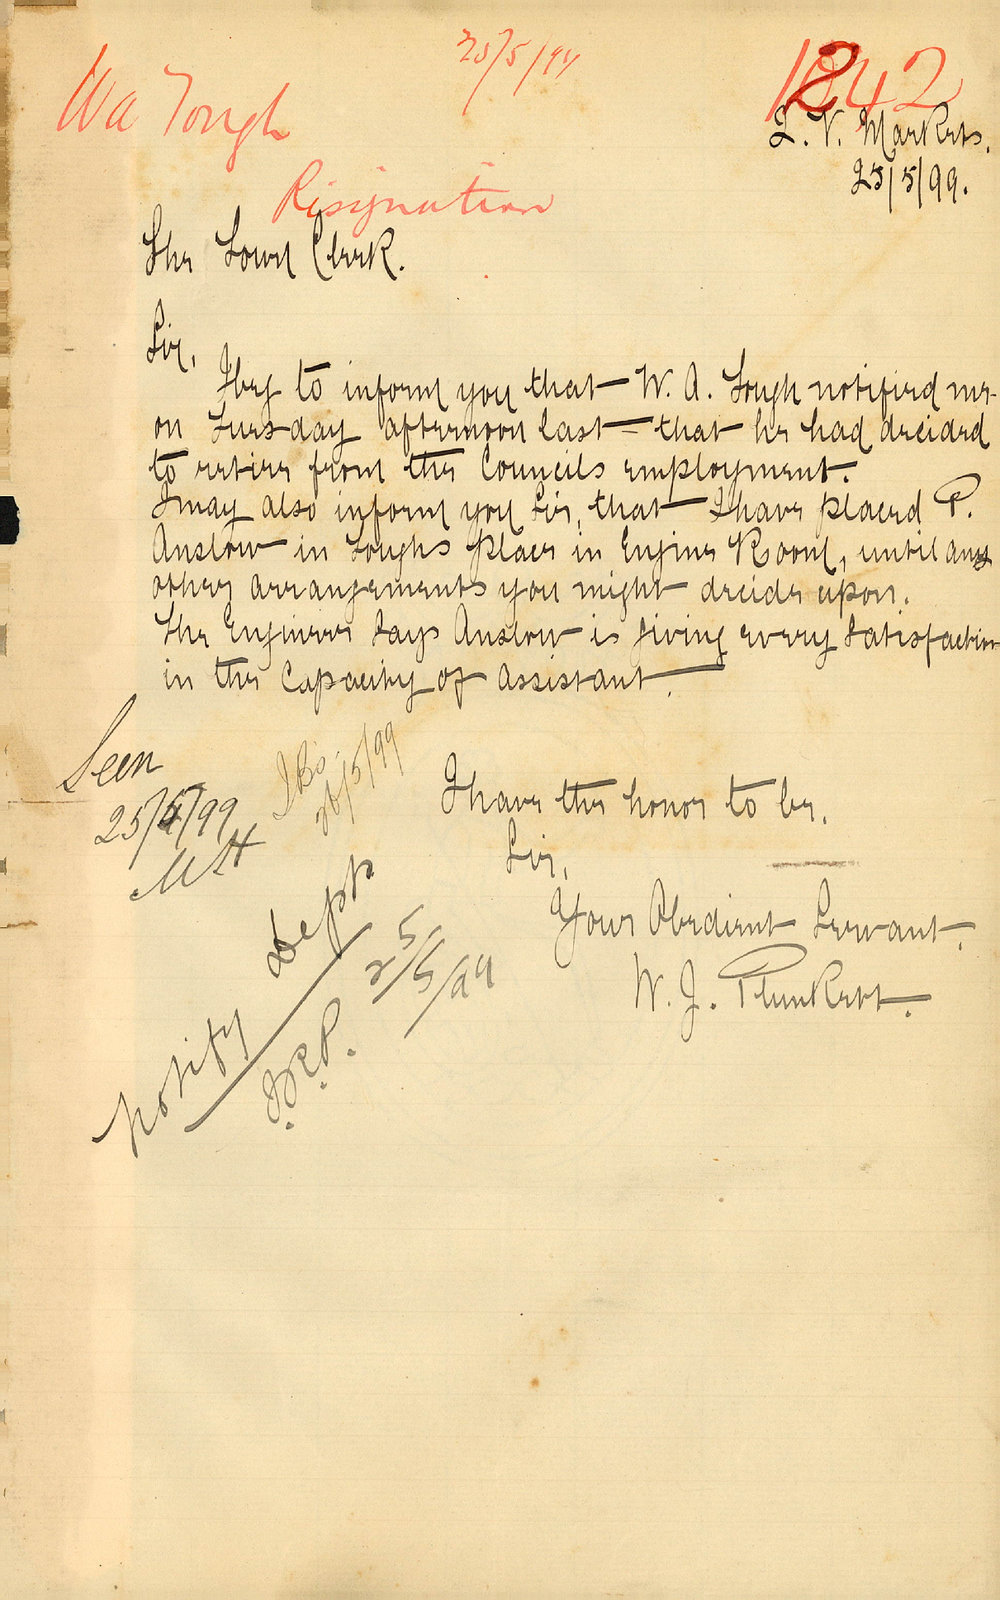 25/5/99
1242
Wa Tough
Q. V. Markets.
25/5/99.
Resignation
The Town Clerk.
Sir,
I beg to inform you that W. A. Tough notified me
on Tuesday afternoon last that he had decided
to retire from the Councils employment.
I may also inform you Sir, that I have placed P.
Anslow in Toughs place in Engine Room, until any
other arrangements you might decide upon.
The Engineer says Anslow is giving every satisfaction
in the capacity of assistant.
Seen
25/5/99
26/5/99
I have the honor to be.
Sir,
Your Obedient Servant.
W. J. Plunkett.
Notify Dept
25/5/99